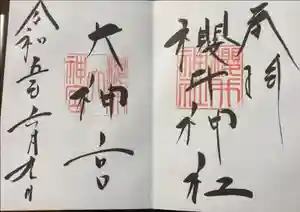 奉拝
櫻井神社
大神宮
令和五年六月九日